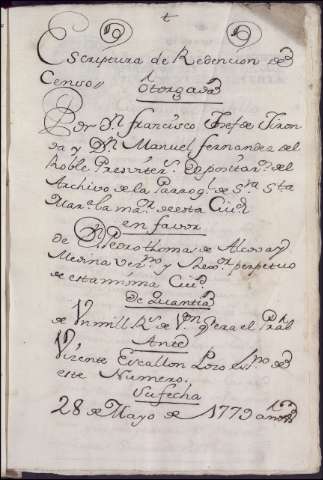 t
Escriptura de Redencion de
Censo//
Otorgada
Por Dn. Francisco Josef de Giron
da y Dn. Manuel fernandez del
Roble Presviter.s Depositar.s del
Archivo de la Parrog.l de S.ra S.ta
Mar.a la ma.r de esta Ciu.d
en favor
de Dn. Pedro thomas de Alcova y
Medina vez.no y perpetuo
de esta misma Ciu.d
De quantia
de Vn mill R.s de V.on q.e era el Pral
Ante
Vizente Lozo es.no de
este Numero.
Su fecha
28 de Mayo de 1779 años